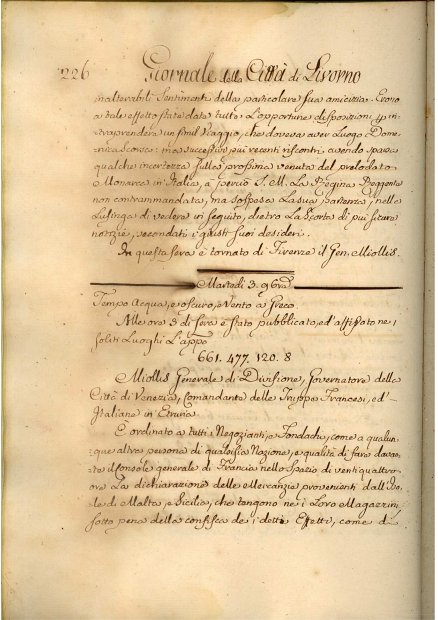 226 Giornale della Città di Livorno
inalterabili Sentimenti della particolare Sua amicizia. Erono
a tale effetto state date tutte L'opportune disposizioni p in
traprendere un simil Viaggio, che doveva aver Luogo Dome
nica Scorsa: ma successivi piu recenti riscontri avendo sparsa
qualche incertezza Sulla prossima venuta del prelodato
Monarca in Italia, a S. M. La Regina Reggente
non contrammandata, ma Sospesa La Sua partenza, nella
Lusinga di vedere in Seguito, dietro La Scorta di piu sicure
notizie, secondati i giusti Suoi desideri.
In questa Sera è tornato di Firenze il Gen. Miollis.
Martedì 3. 9bre
Tempo Acqua, e oscuro, e Vento a Greco
Alle ore 3 di Sera è Stato pubblicato, ed affissato ne i
Soliti Luoghi L'app.to
661. 477. 120. 8
Miollis Generale di Divisione, Governatore della
Città di Venezia, Comandante delle Truppe Francesi, ed
Italiane in Etruria
E ordinato a tutti i Negozianti, e Fondachi, come a qualun
que altra persona di qualsisia Nazione, e qualità di fare davan
te il Console generale di Francia nello Spazio di venti quattro
ore La dichiarazione delle Mercanzie provenienti dall'Iso
le di Malta, e Sicilia, che tengono ne i Loro Magazzini,
Sotto pena della confisca de i detti Effetti, come di